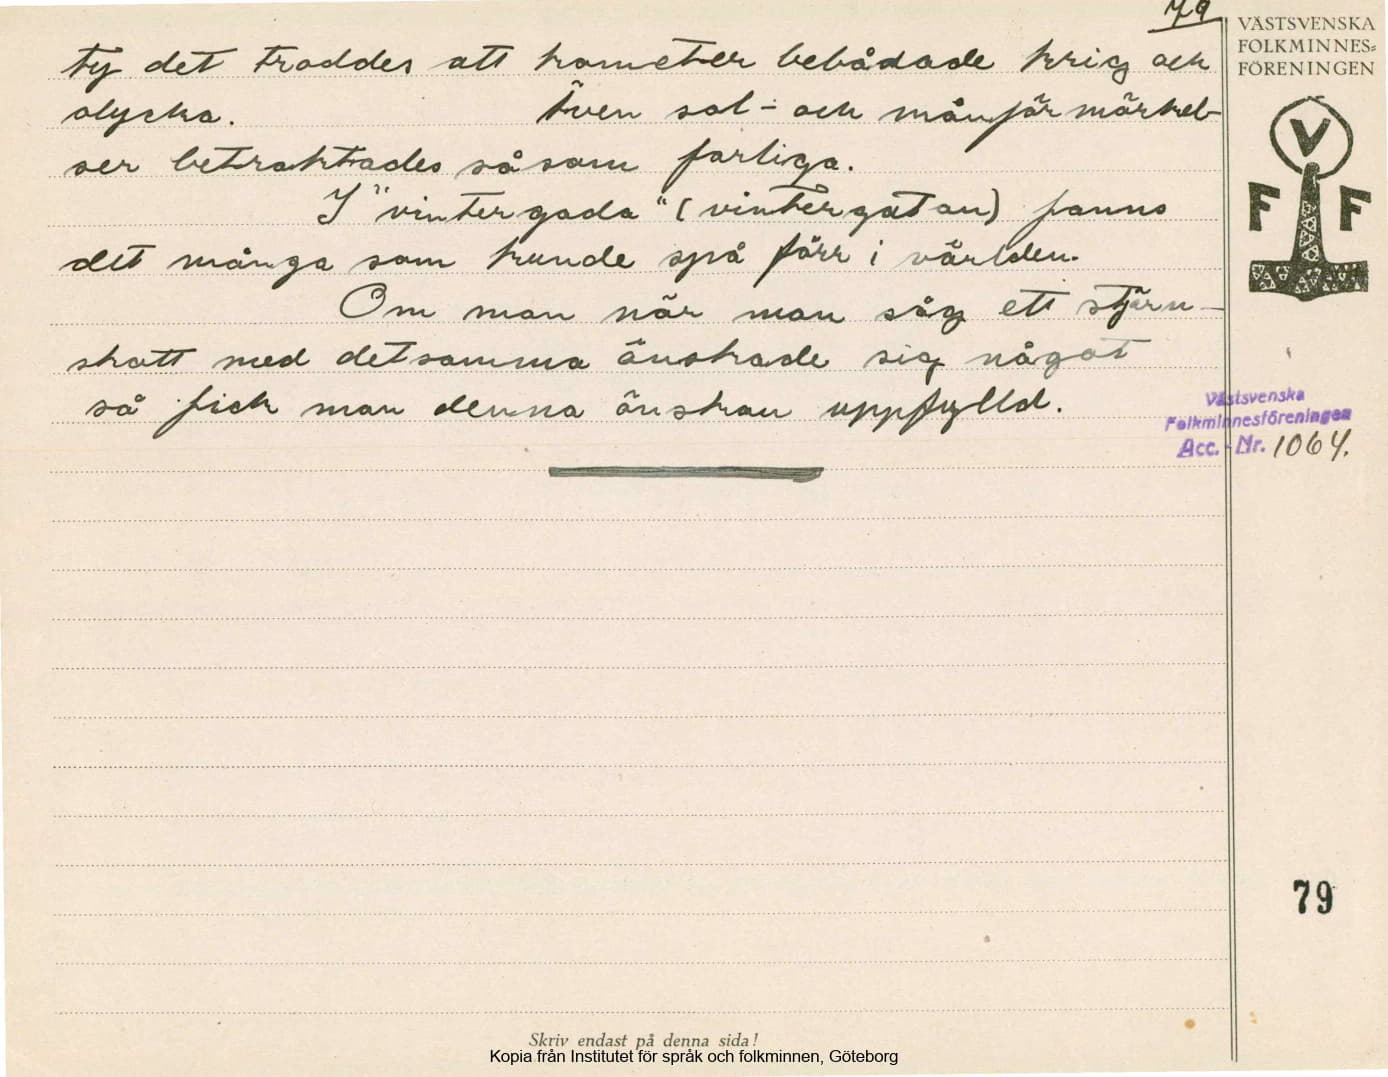 79
VÄSTSVENSKA
FOLKMINNES=
FÖRENINGEN
V
F F
ty det troddes att kometer bebådade krig och
olycka. Även sol- och månförmörkel-
ser betraktades såsom farliga.
I "vintergada" (vintergatan) fanns
det många som kunde spå förr i världen.
Om man när man såg ett stjärn-
skott med detsamma önskade sig något
så fick man denna önskan uppfylld.
Västsvenska
Folkminnesföreningen
Acc. - Nr. 1064.
79
Skriv endast på denna sida!
Kopia från Institutet för språk och folkminnen, Göteborg